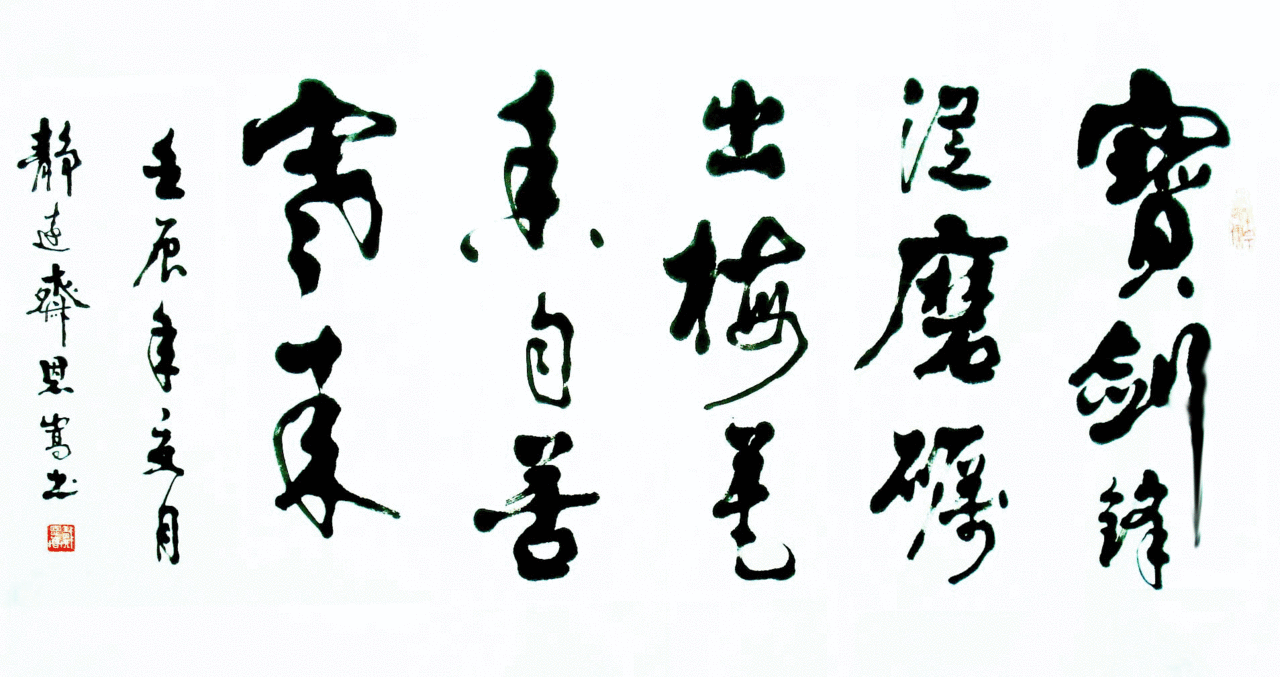 寶劍鋒
從磨礪
出梅花
香自苦
寒來
壬辰年夏月
靜遠齋恩嵩书